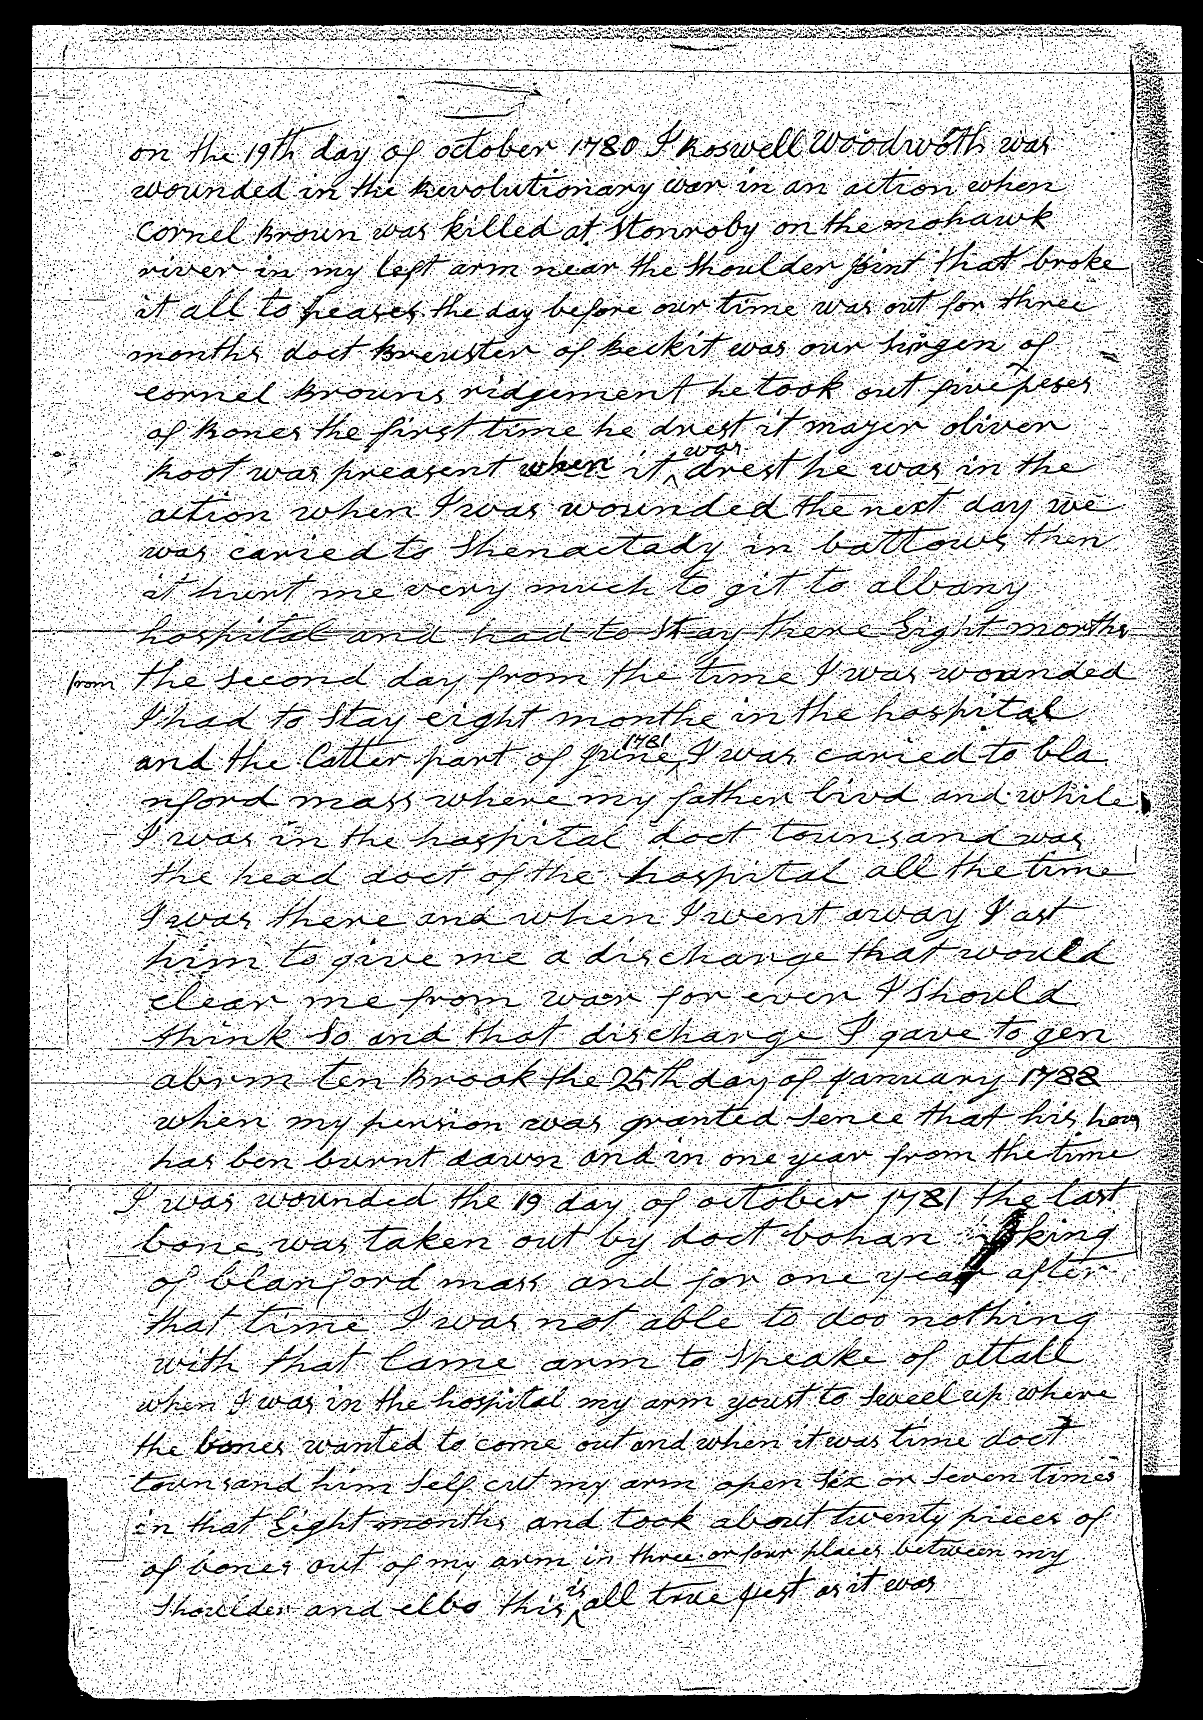 on the 19th day of october 1780 I Roswell Woodwoth was
wounded in the Revolutionary war in an action when
Cornel Broun was killed at Stonroby on the mohawk
river in my left arm near the Shoulder Joint that broke
it all to peases the day before our time was out for three
months doct Breuster of Beckit was our Sirgen of
cornel Brouns ridgement he took out five peses
of Bones the first time he drest it majer oliver
Root was preasent when it was drest he was in the
action when I was wounded the next day we
was caried to Shenactady in battows then
it hurt me very much to git to albany
hospital and had to Stay there Eight months
from the Second day from the time I was wounded
I had to Stay eight monthe in the hospital
and the Latter part of June 1781 I was caried to bla
nford mass where my father livd and while
I was in the hospital doct tounsand was
the head doct of the hospital all the time
I was there and when I went away I ast
him to give me a discharge that would
clear me from war for ever I Should
think So and that discharge I gave to gen
abrm ten Brook the 25th day of January 1788
when my pension was granted Sence that his hous
has ben burnt dawn and in one year from the time
I was wounded the 19 day of october 1781 the last
bone was taken out by doct bohan king
of blanford mass and for one year after
that time I was not able to doo nothing
with that Lame arm to Speake of attall
when I was in the hospital my arm youst to Sweel up where
the bones wanted to come out and when it was time doct
tounsand him Self cut my arm open Six or Seven times
in that Eight months and took about twenty pieces of
of bones out of my arm in three or four places between my
Shoulder and elbo this is all true Jest as it was